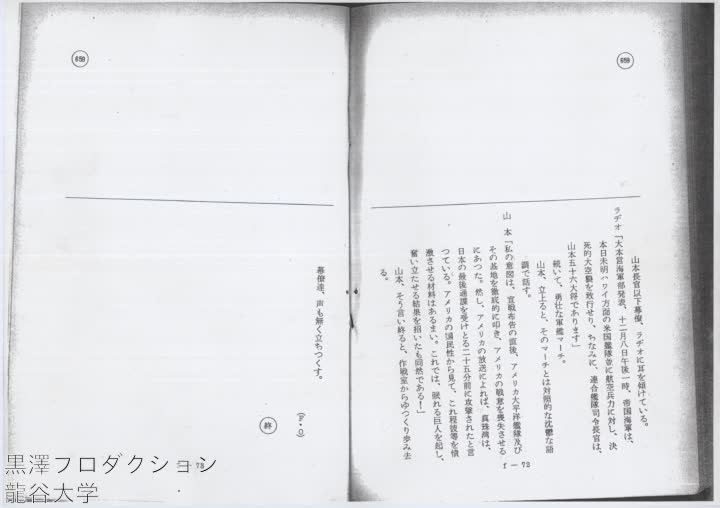 659
山本長官以下幕僚、ラヂオに耳を傾けている。
ラヂオ「大本営海軍部発表、十二月八日午後一時、帝国海軍は、
本日未明ハワイ方面の米国艦隊並に航空兵力に対し、決
死的大空襲を敢行せり、ちなみに、連合艦隊司令長官は、
山本五十六大将であります」
続いて、勇壮な軍艦マーチ。
山本、立上ると、そのマーチとは対照的な沈鬱な語
調で話す。
山 本「私の意図は、宣戦布告の直後、アメリカ太平洋艦隊及び
その基地を徹底的に叩き、アメリカの戦意を喪失させる
にあつた。然し、アメリカの放送によれば、真珠湾は、
日本の最後通諜を受けとる二十五分前に攻撃されたと言
つている。アメリカの国民性から見て、これ程彼等を憤
激させる材料はあるまい。これでは、眠れる巨人を起し、
奮い立たせる結果を招いたも同然である!」
山本、そう言い終ると、作戦室からゆつくり歩み去
る。
f — 72
幕僚達、声も無く立ちつくす。
(F・O)
終
73
黒澤プロダクション
龍谷大学